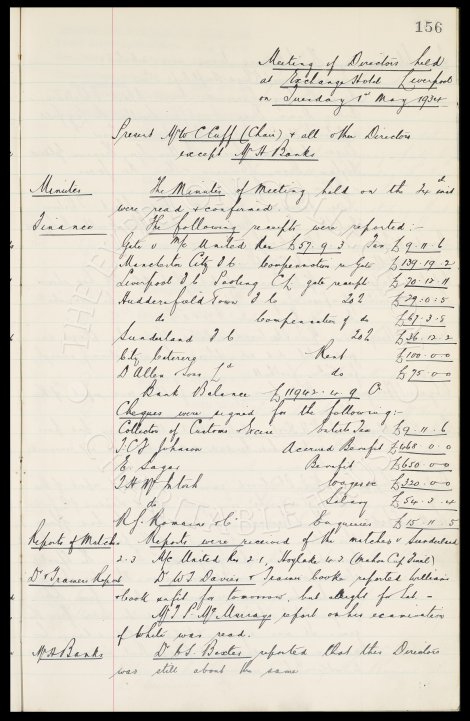 156
Meeting of Directors held
at Exchange Hotel Liverpool
on Tuesday 1st May 1934
Present Mr W C Cuff (Chair) & all other Directors
except Mr H Banks
Minutes The Minutes of Meeting held on the 24th
were read & confirmed
Finance The following receipts were reported:-
Gate v M/c United Res £57.9.3 Tax £9.11.6
Manchester City F C Compensation re Gate £139.19.2
Liverpool F C Cup gate receipts £70.12.11
Huddersfield Town F C 20% £29.0.5
do Compensation re do £67.3.8
Sunderland F C 20% £36.12.2
City Caterers Rent £100.0.0
D Allen Sons Ld do £75.0.0
Bank Balance £11942.4.9 Cr
Cheques were signed for the following:-
Collector of Customs Excise Ents Tax £9.11.6
T C F Johnson Accrued Benefit £468.0.0
E Sagar Benefit £650.0.0
T H McIntosh Wages &c £320.0.0
do Salary £54.3.4
R J Romaine & Co Enquiries £15.11.5
Reports of Matches Reports were received of the matches v Sunderland
2.3 M/c United Res 2.1, Hoylake (Mahon Cup Final)
Dr & Trainers Report Dr W F Davies & Trainer Cooke reported Williams
& Cook unfit for tomorrow, but alright for Sat -
Mr T P McMurray's report on his examination
of White was read.
Mr H Banks Dr Baxter reported that this Directors
was still about the same